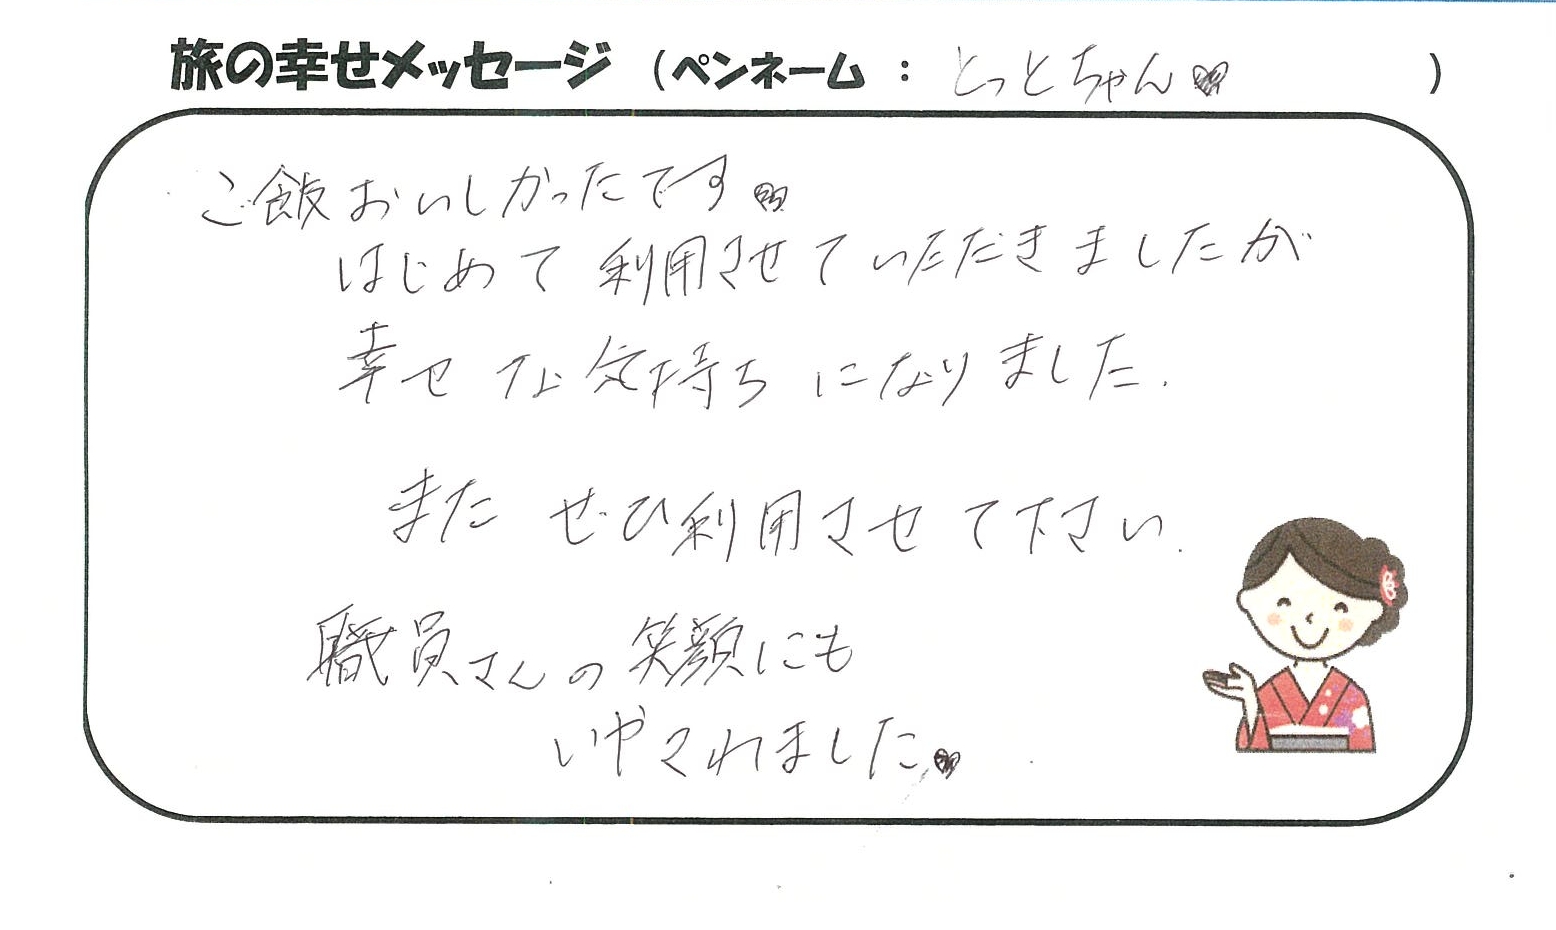 旅の幸せメッセージ (ペンネーム : とっとちゃん♥ )
ご飯おいしかったです♥
はじめて利用させていただきましたが
幸せな気持ちになりました.
また ぜひ利用させて下さい.
職員さんの笑顔にも
いやされました♥